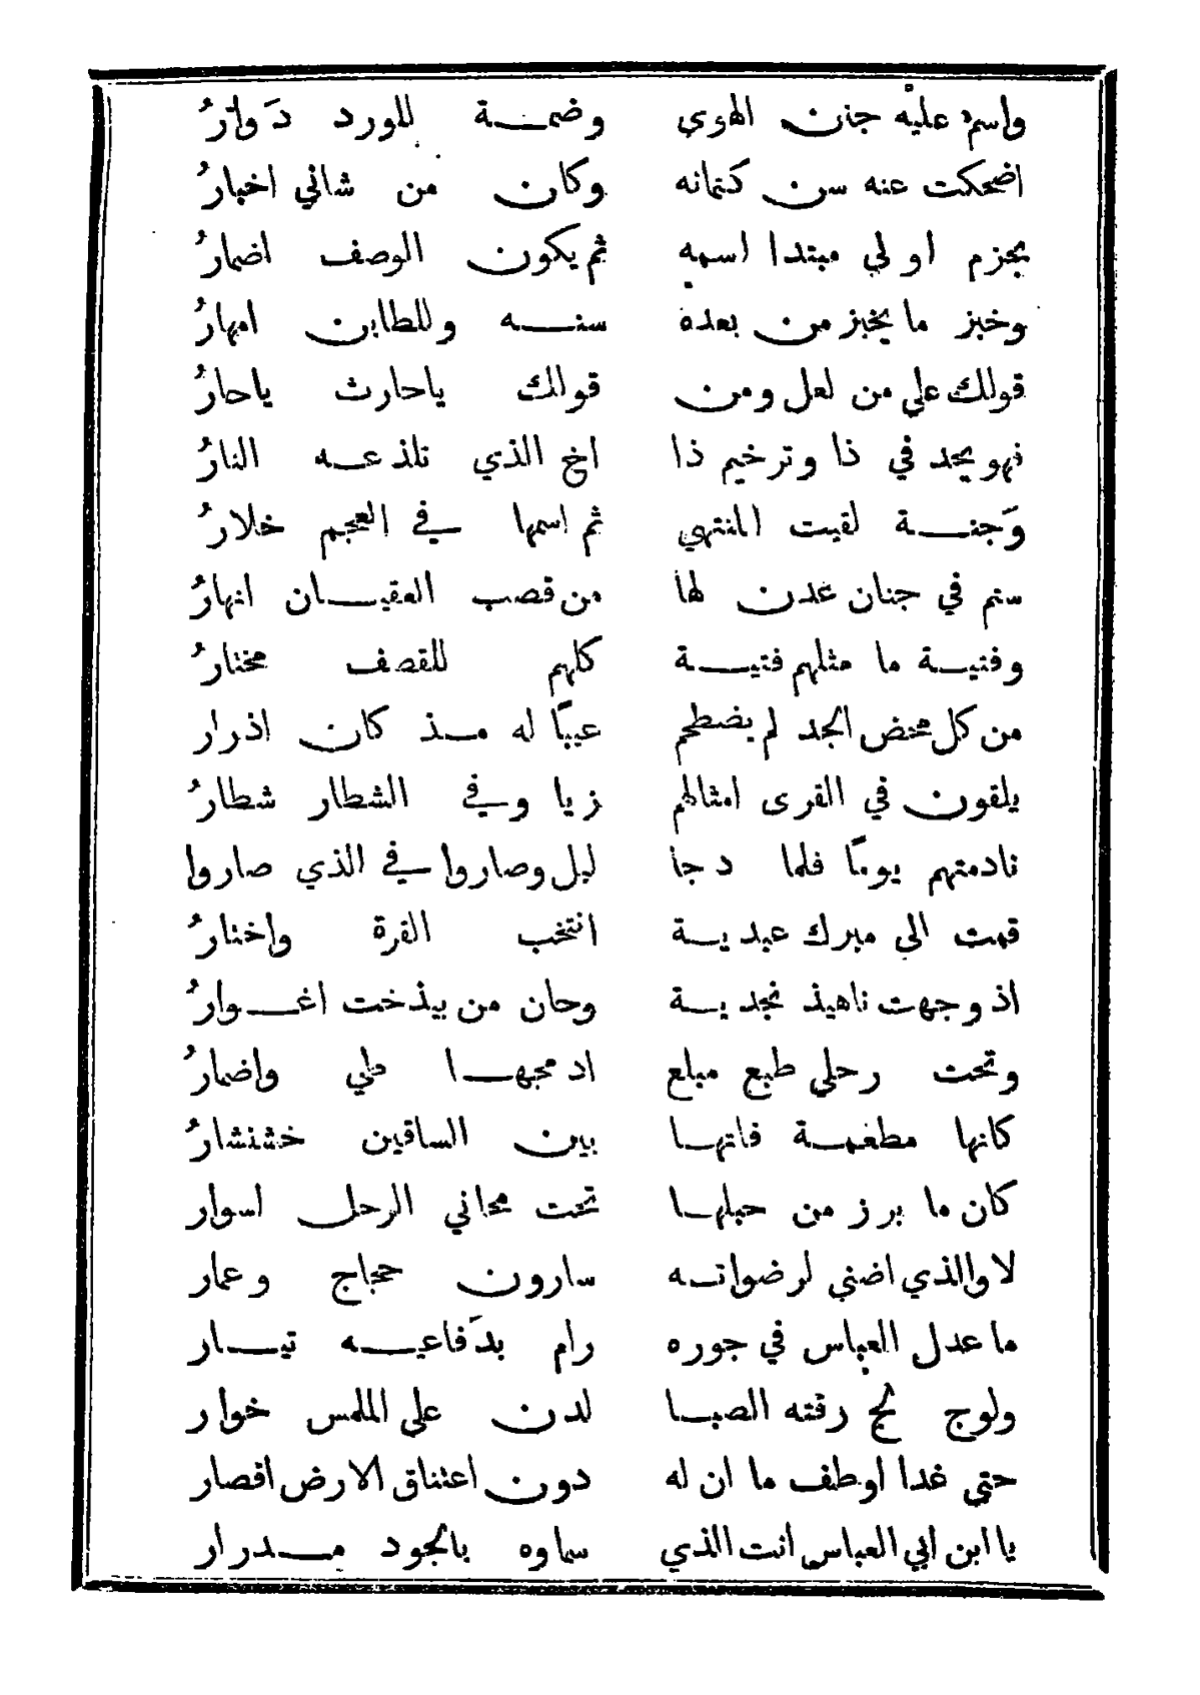 واسم عليه جنن الهوي وضمة للورد دَوارُ
اضحكت عنه سن كتمانه وكان من شاني اخبارُ
بجزم اولي مبتدا اسمه ثم يكون الوصف اضمارُ
وخبز ما يخبز من بعده سنه وللطابن امهارُ
قولك علي من لعل ومن قولك ياحارث ياحارُ
نهو يحد في ذا وترخيم ذا اخ الذي تلذعه النارُ
وَجنة لقيت المنتهي ثم اسمها في العجم خلارُ
ستم في جنان عدن لها من قصب العقيان انهارُ
وفتية ما مثلهم فتية كلهم للقصف مختارُ
من كل محض الجد لم يضطحم عيبًا له مذ كان اذرار
يلقون في القرى امثالهم زيا وفي الشطار شطارُ
نادمتهم يومًا فلما دجا ليل وصاروا في الذي صاروا
قمت الي مبرك عبدية انتخب الفرة واختارُ
اذ وجهت ناهيذ نجدية وحان من بيذخت اغوارُ
وتحت رحلي طبع مبلع ادمجها طي واضمارُ
كانها مطغمة فاتها بين الساقين خشنشارُ
كان ما برز من حبلها تحت محاني الرحل اسوار
لا والذي اضني لرضواته سارون حجاج وعمار
ما عدل العباس في جوره رام بدَفاعيه تيار
ولوج لج رقته الصبا لدن على الملمس خوار
حتي غدا اوطف ما ان له دون اعتناق الارض اقصار
يا ابن ابي العباس انت الذي سماوه بالجود مدرار